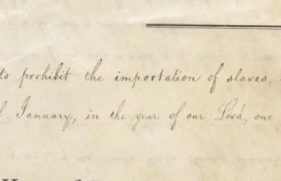 to prohibit the importation of slaves,
January, in the year of our Lord, one